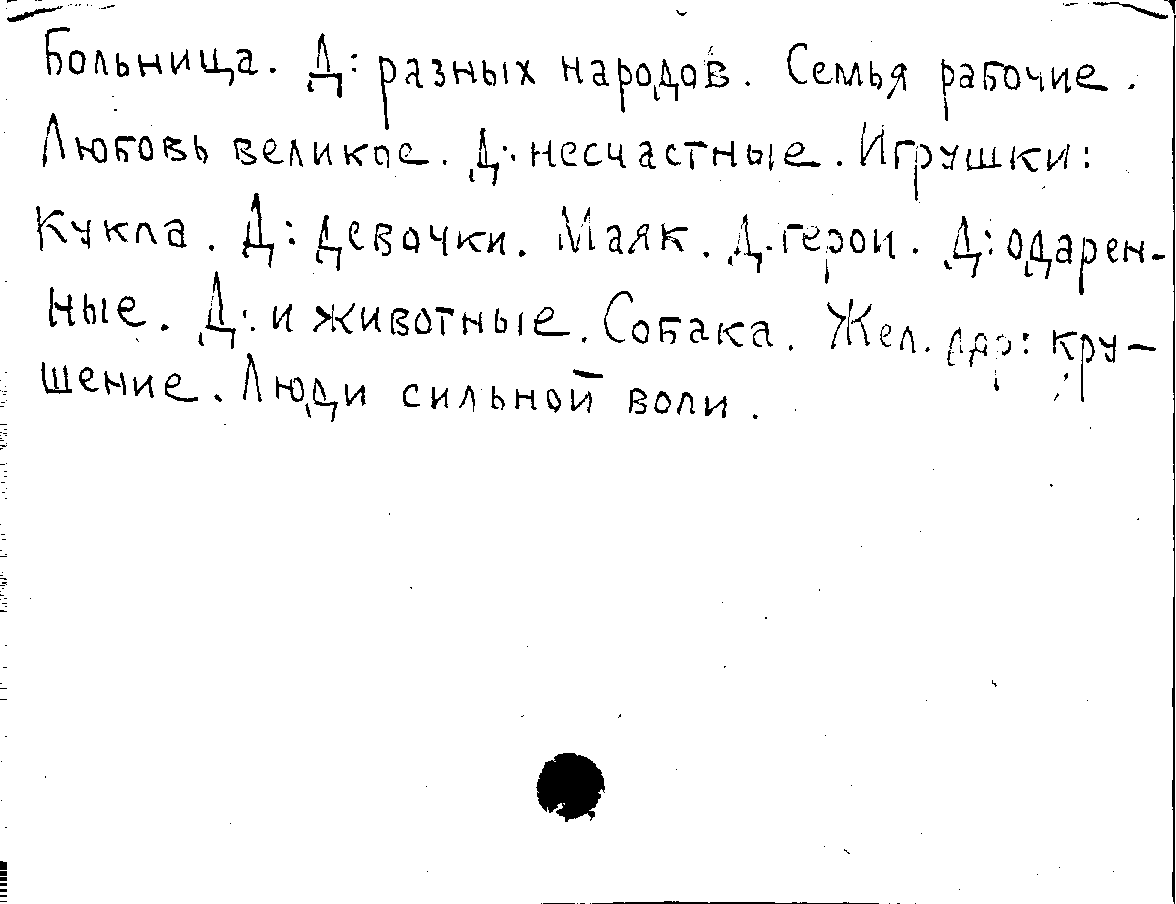 Больница. Д: разных народов. Семья рабочие.
Любовь великое. Д: несчастные. Игрушки:
Кукла. Д: девочки. Маяк. Д. герои. Д: одарен-
ные. Д: и животные. Собака. Жел. дор: кру-
шение. Люди сильной воли.